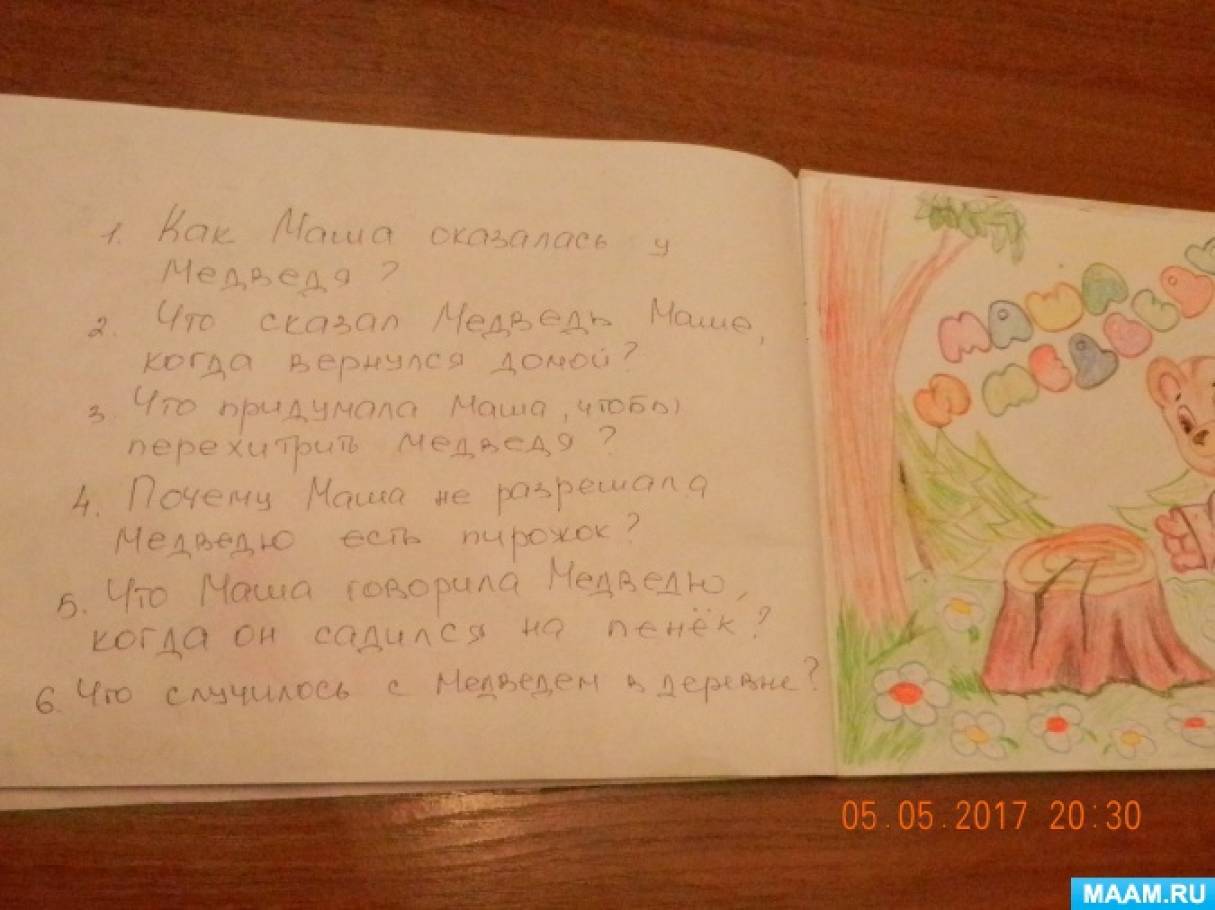 1. Как Маша оказалась у
Медведя?
2. Что сказал Медведь Маше,
когда вернулся домой?
3. Что придумала Маша, чтобы
перехитрить Медведя?
4. Почему Маша не разрешала
Медведю есть пирожок?
5. Что Маша говорила Медведю,
когда он садился на пенёк?
6. Что случилось с Медведем в деревне?
МАША
И МЕДВЕ
05.05.2017 20:30
MAAM.RU